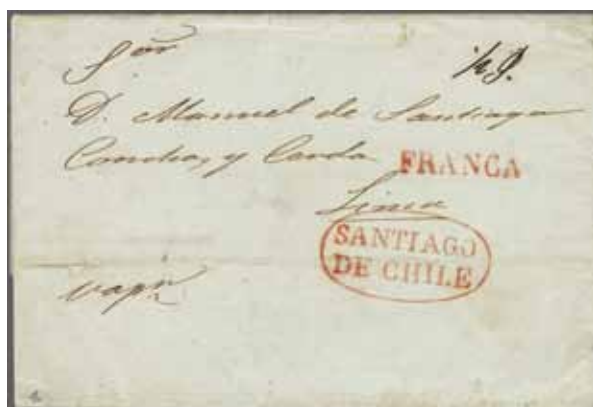 Sor
D. Manuel de Santiago
Concha, y Cerda FRANCA
Lima
SANTIAGO
DE CHILE
vapr